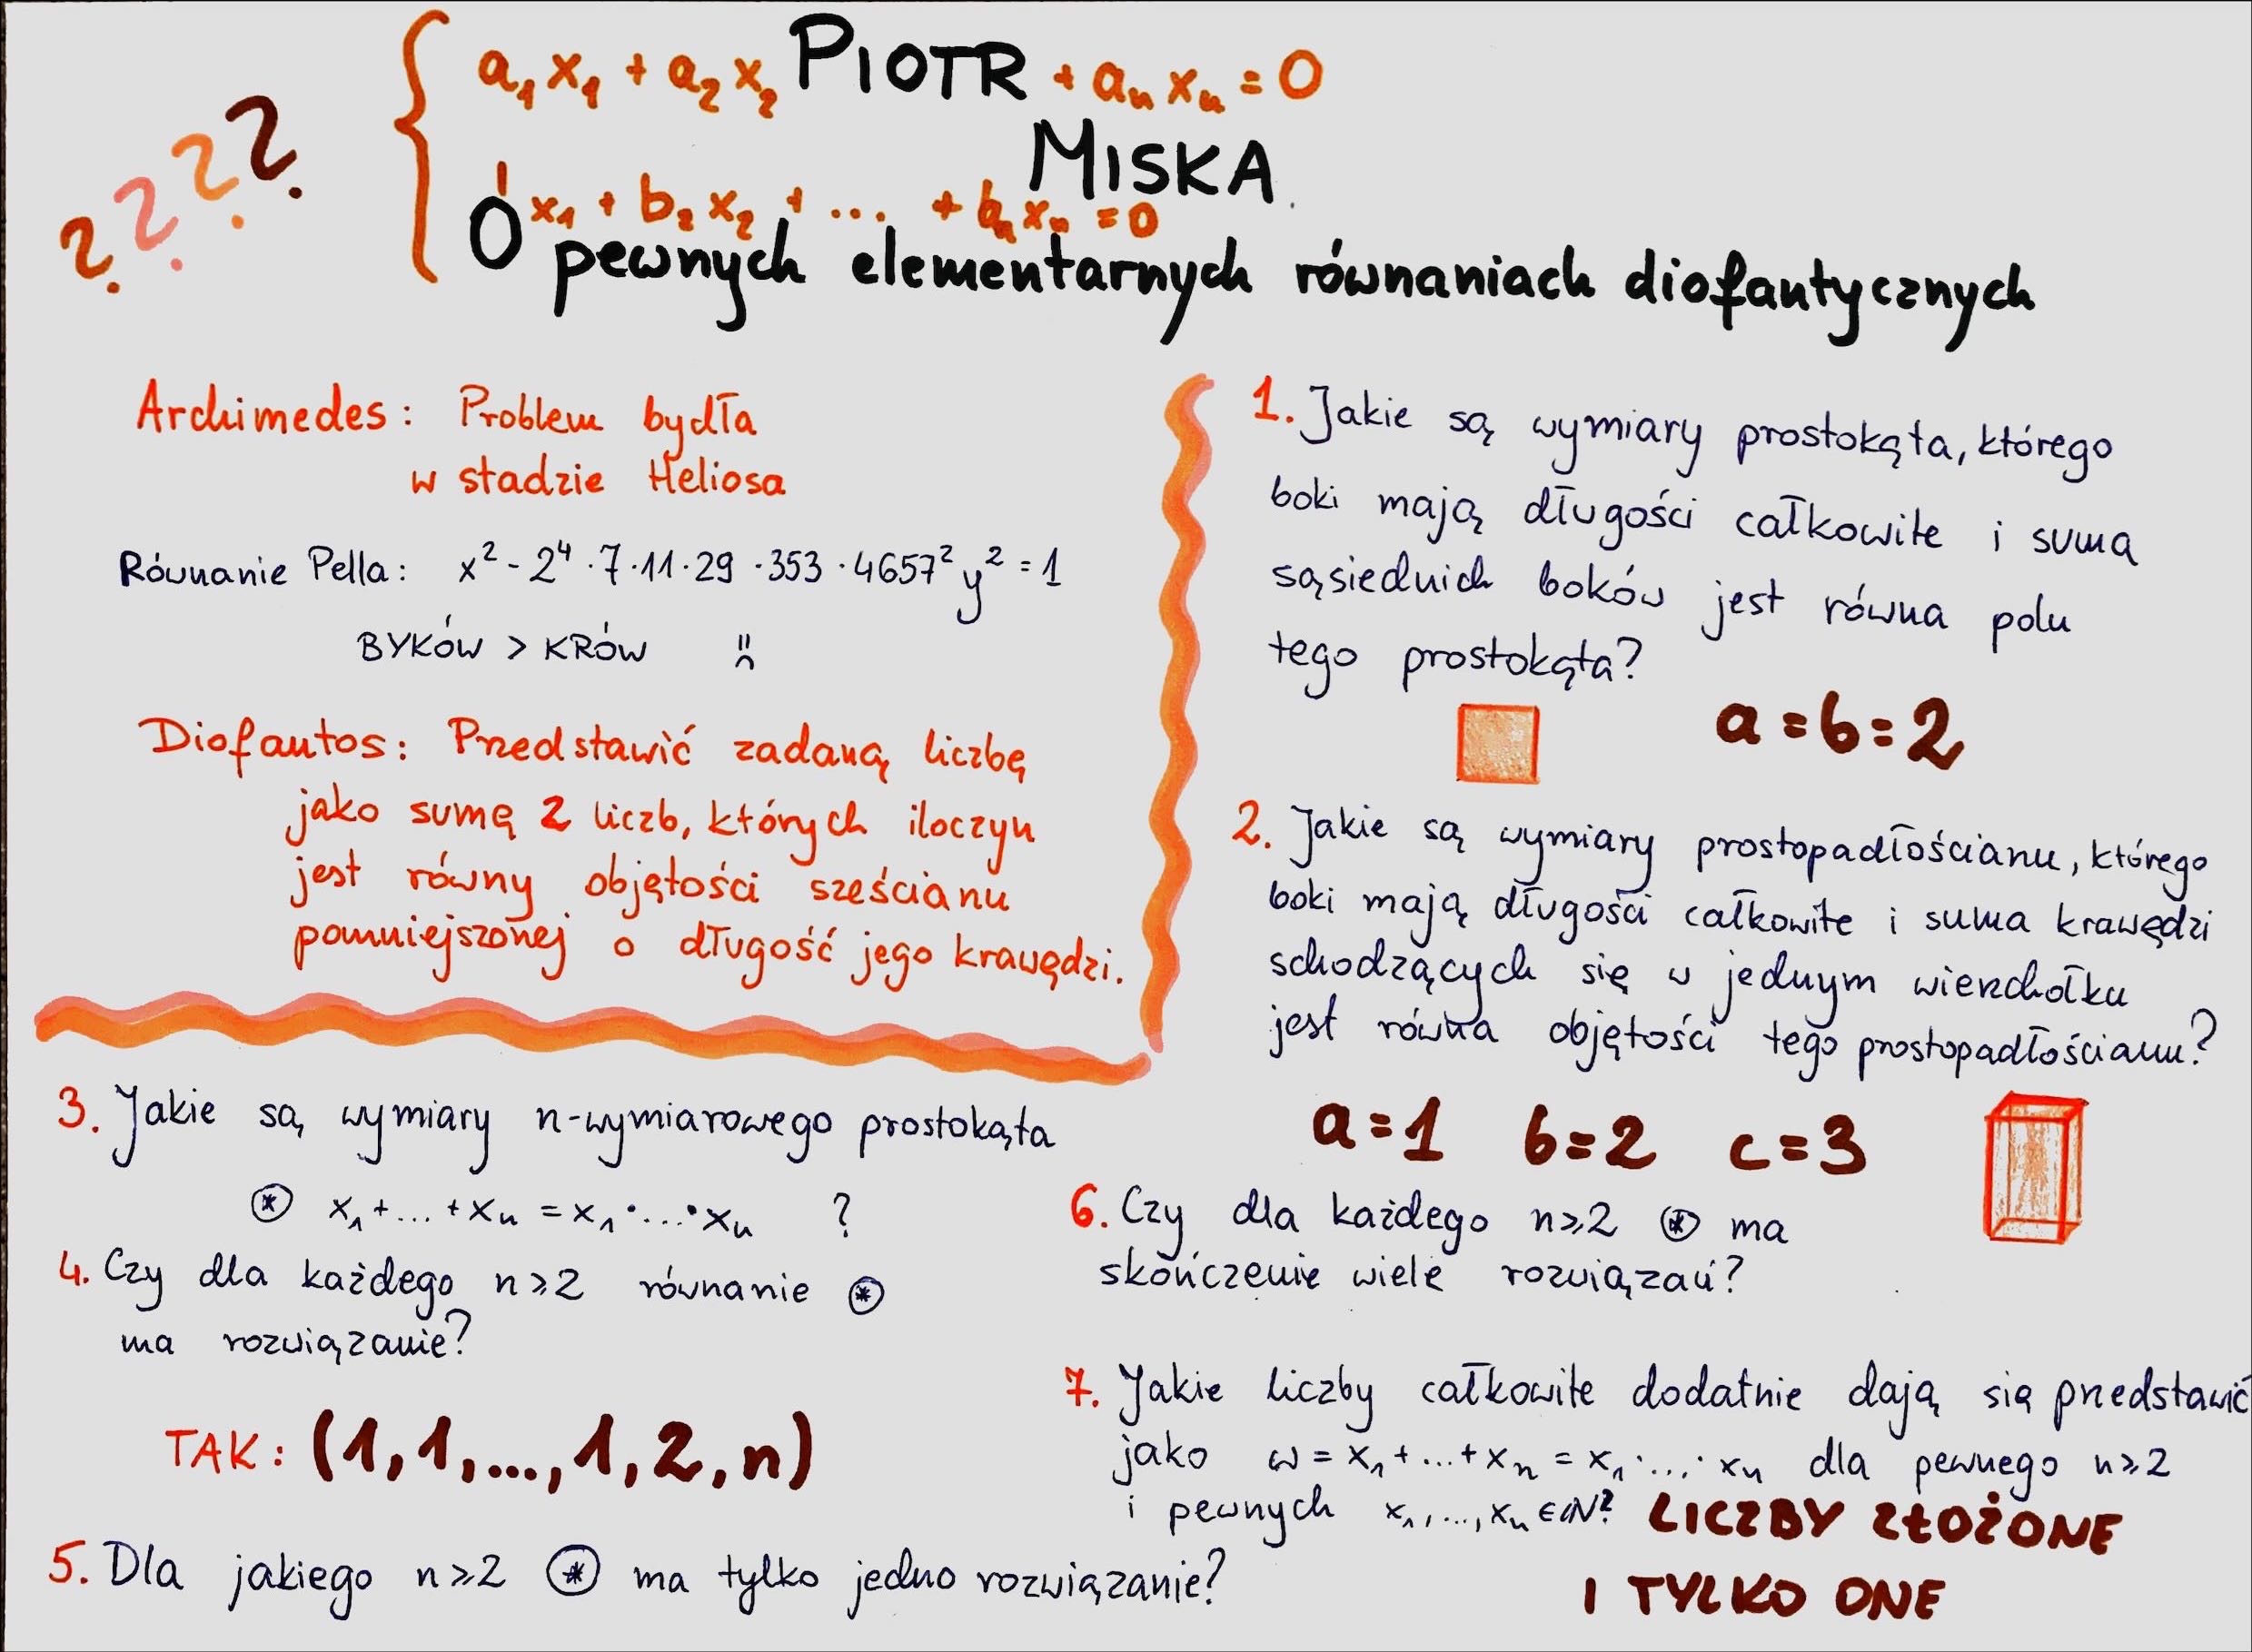 a₁x₁ + a₂x₂ PIOTR + aₙxₙ = 0
MISKA
x₁ + b₂x₂ + ... + bₙxₙ = 0
O pewnych elementarnych równaniach diofantycznych
? ? ? ?
Archimedes: Problem bydła
w stadzie Heliosa
Równanie Pella: x² - 2⁴·7·11·29·353·4657² y² = 1
BYKÓW > KRÓW
Diofantos: Przedstawić zadaną liczbę
jako sumę 2 liczb, których iloczyn
jest równy objętości sześcianu
pomniejszonej o długość jego krawędzi.
1. Jakie są wymiary prostokąta, którego
boki mają długości całkowite i suma
sąsiednich boków jest równa polu
tego prostokąta?
a = b = 2
2. Jakie są wymiary prostopadłościanu, którego
boki mają długości całkowite i suma krawędzi
schodzących się w jednym wierzchołku
jest równa objętości tego prostopadłościanu?
a = 1 b = 2 c = 3
3. Jakie są wymiary n-wymiarowego prostokąta
⊛ x₁ + ... + xₙ = x₁·...·xₙ ?
4. Czy dla każdego n ⩾ 2 równanie ⊛
ma rozwiązanie?
TAK: (1,1,...,1,2,n)
5. Dla jakiego n ⩾ 2 ⊛ ma tylko jedno rozwiązanie?
6. Czy dla każdego n ⩾ 2 ⊛ ma
skończenie wiele rozwiązań?
7. Jakie liczby całkowite dodatnie dają się przedstawić
jako w = x₁ + ... + xₙ = x₁·...·xₙ dla pewnego n ⩾ 2
i pewnych x₁,...,xₙ ∈ ℕ? LICZBY ZŁOŻONE
I TYLKO ONE